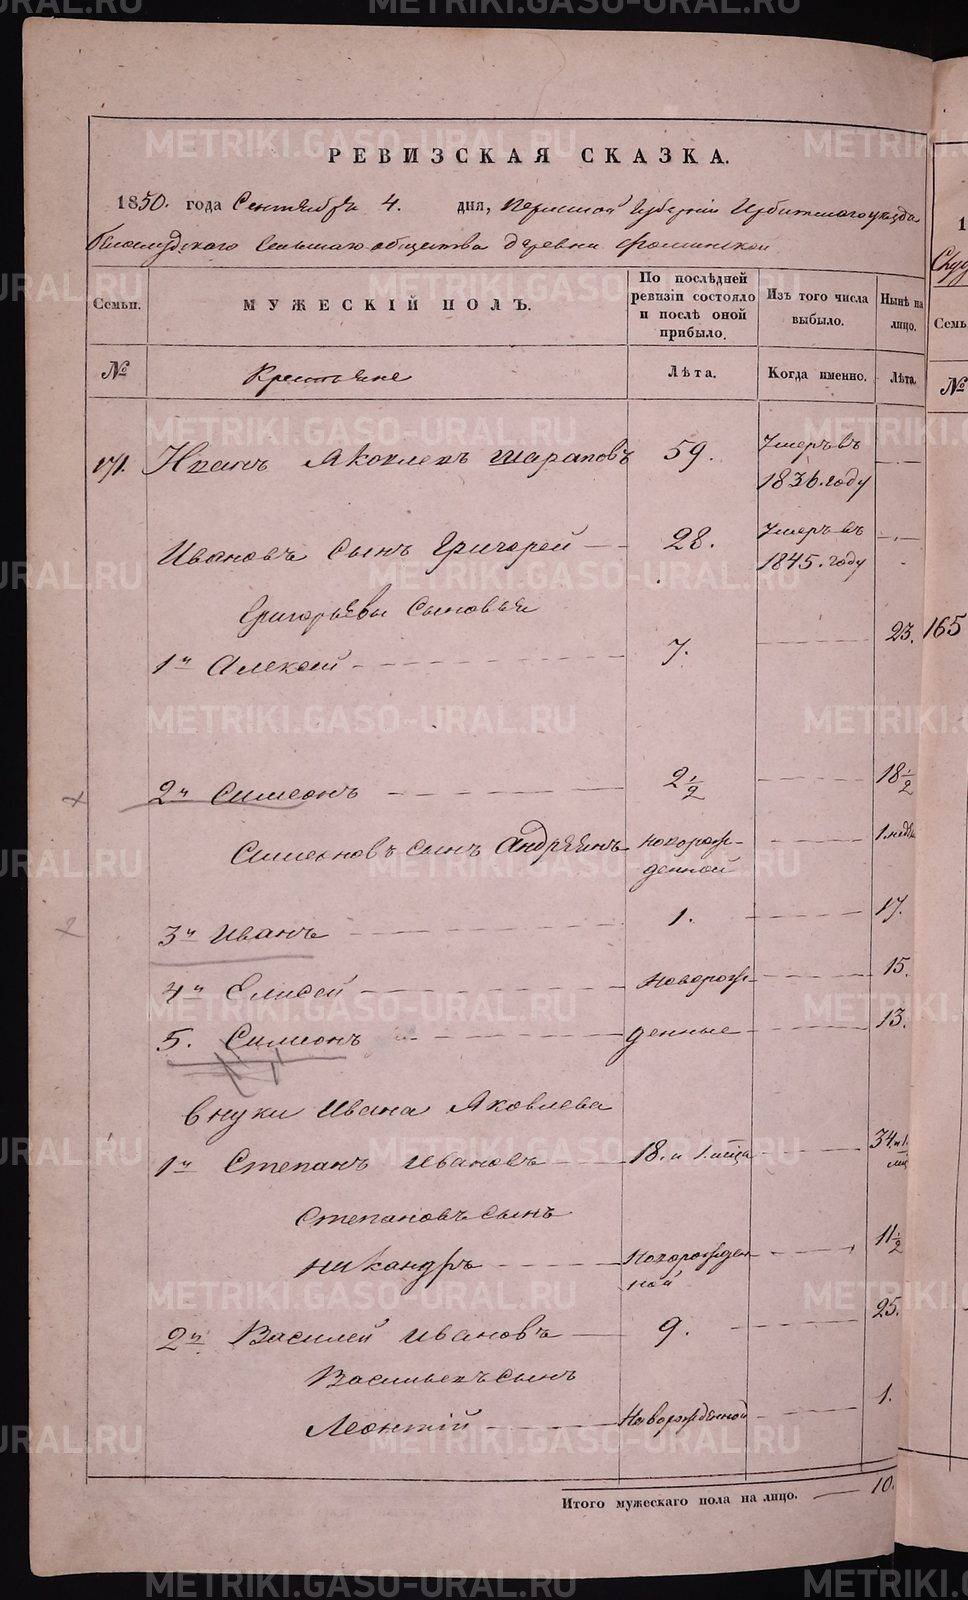 РЕВИЗСКАЯ СКАЗКА.
1850. года Сентября 4. дня, Пермской Губернiи Ирбитскаго уѣзда
Сельскаго общества деревни Фоминской
Семьи.
МУЖЕСКIЙ ПОЛЪ.
По послѣдней
ревизiи состояло
и послѣ оной
прибыло.
Изъ того числа
выбыло.
Нынѣ на
лицо.
№
Крестьяне
Лѣта.
Когда именно.
Лѣта.
171. Иванъ Яковлевъ Шараповъ 59. Умеръ въ
1836. году
Ивановъ сынъ Григорей 28. Умеръ въ
1845. году
Григорьевы сыновья
1й Алексей 7. 23.
2й Симеонъ 2 1/2 18 1/2
Симеоновъ сынъ Андреянъ новорож-
денной
3й Иванъ 1. 17.
4й Елисей новорож- 15.
5. Симеонъ денные 13.
Внуки Ивана Яковлева
1й Степанъ Ивановъ 18. и 1. м-ца 34. и 1.
Степановъ сынъ
Никандръ новорожден 11 1/2
ной
2й Василей Ивановъ 9. 25.
Васильевъ сынъ
Леонтiй Новорожденной 1.
Итого мужескаго пола на лицо. 10.
Семь
№
165
METRIKI.GASO-URAL.RU